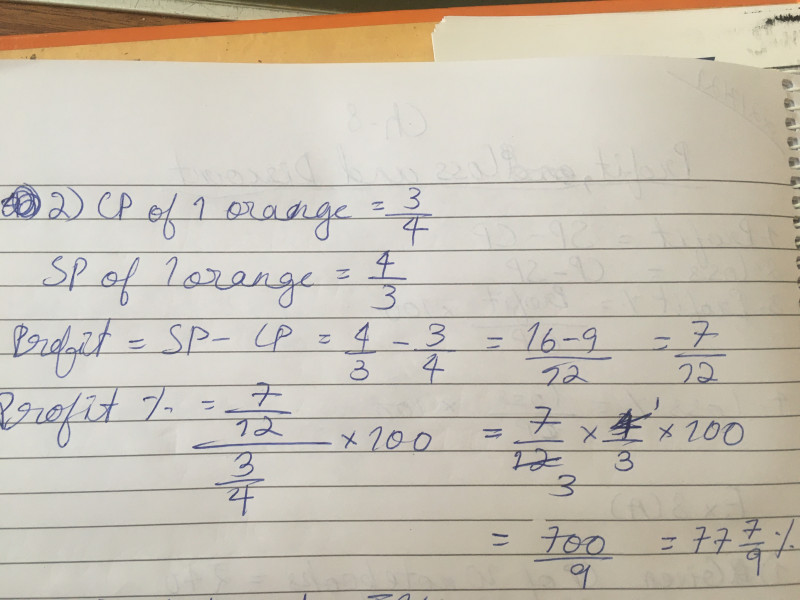 2) CP of 1 orange = 3/4
SP of 1 orange = 4/3
Profit = SP - CP = 4/3 - 3/4 = 16-9/12 = 7/12
Profit % = 7/12 / 3/4 × 100 = 7/12 3 × 4/3 1 × 100
= 700/9 = 77 7/9 %